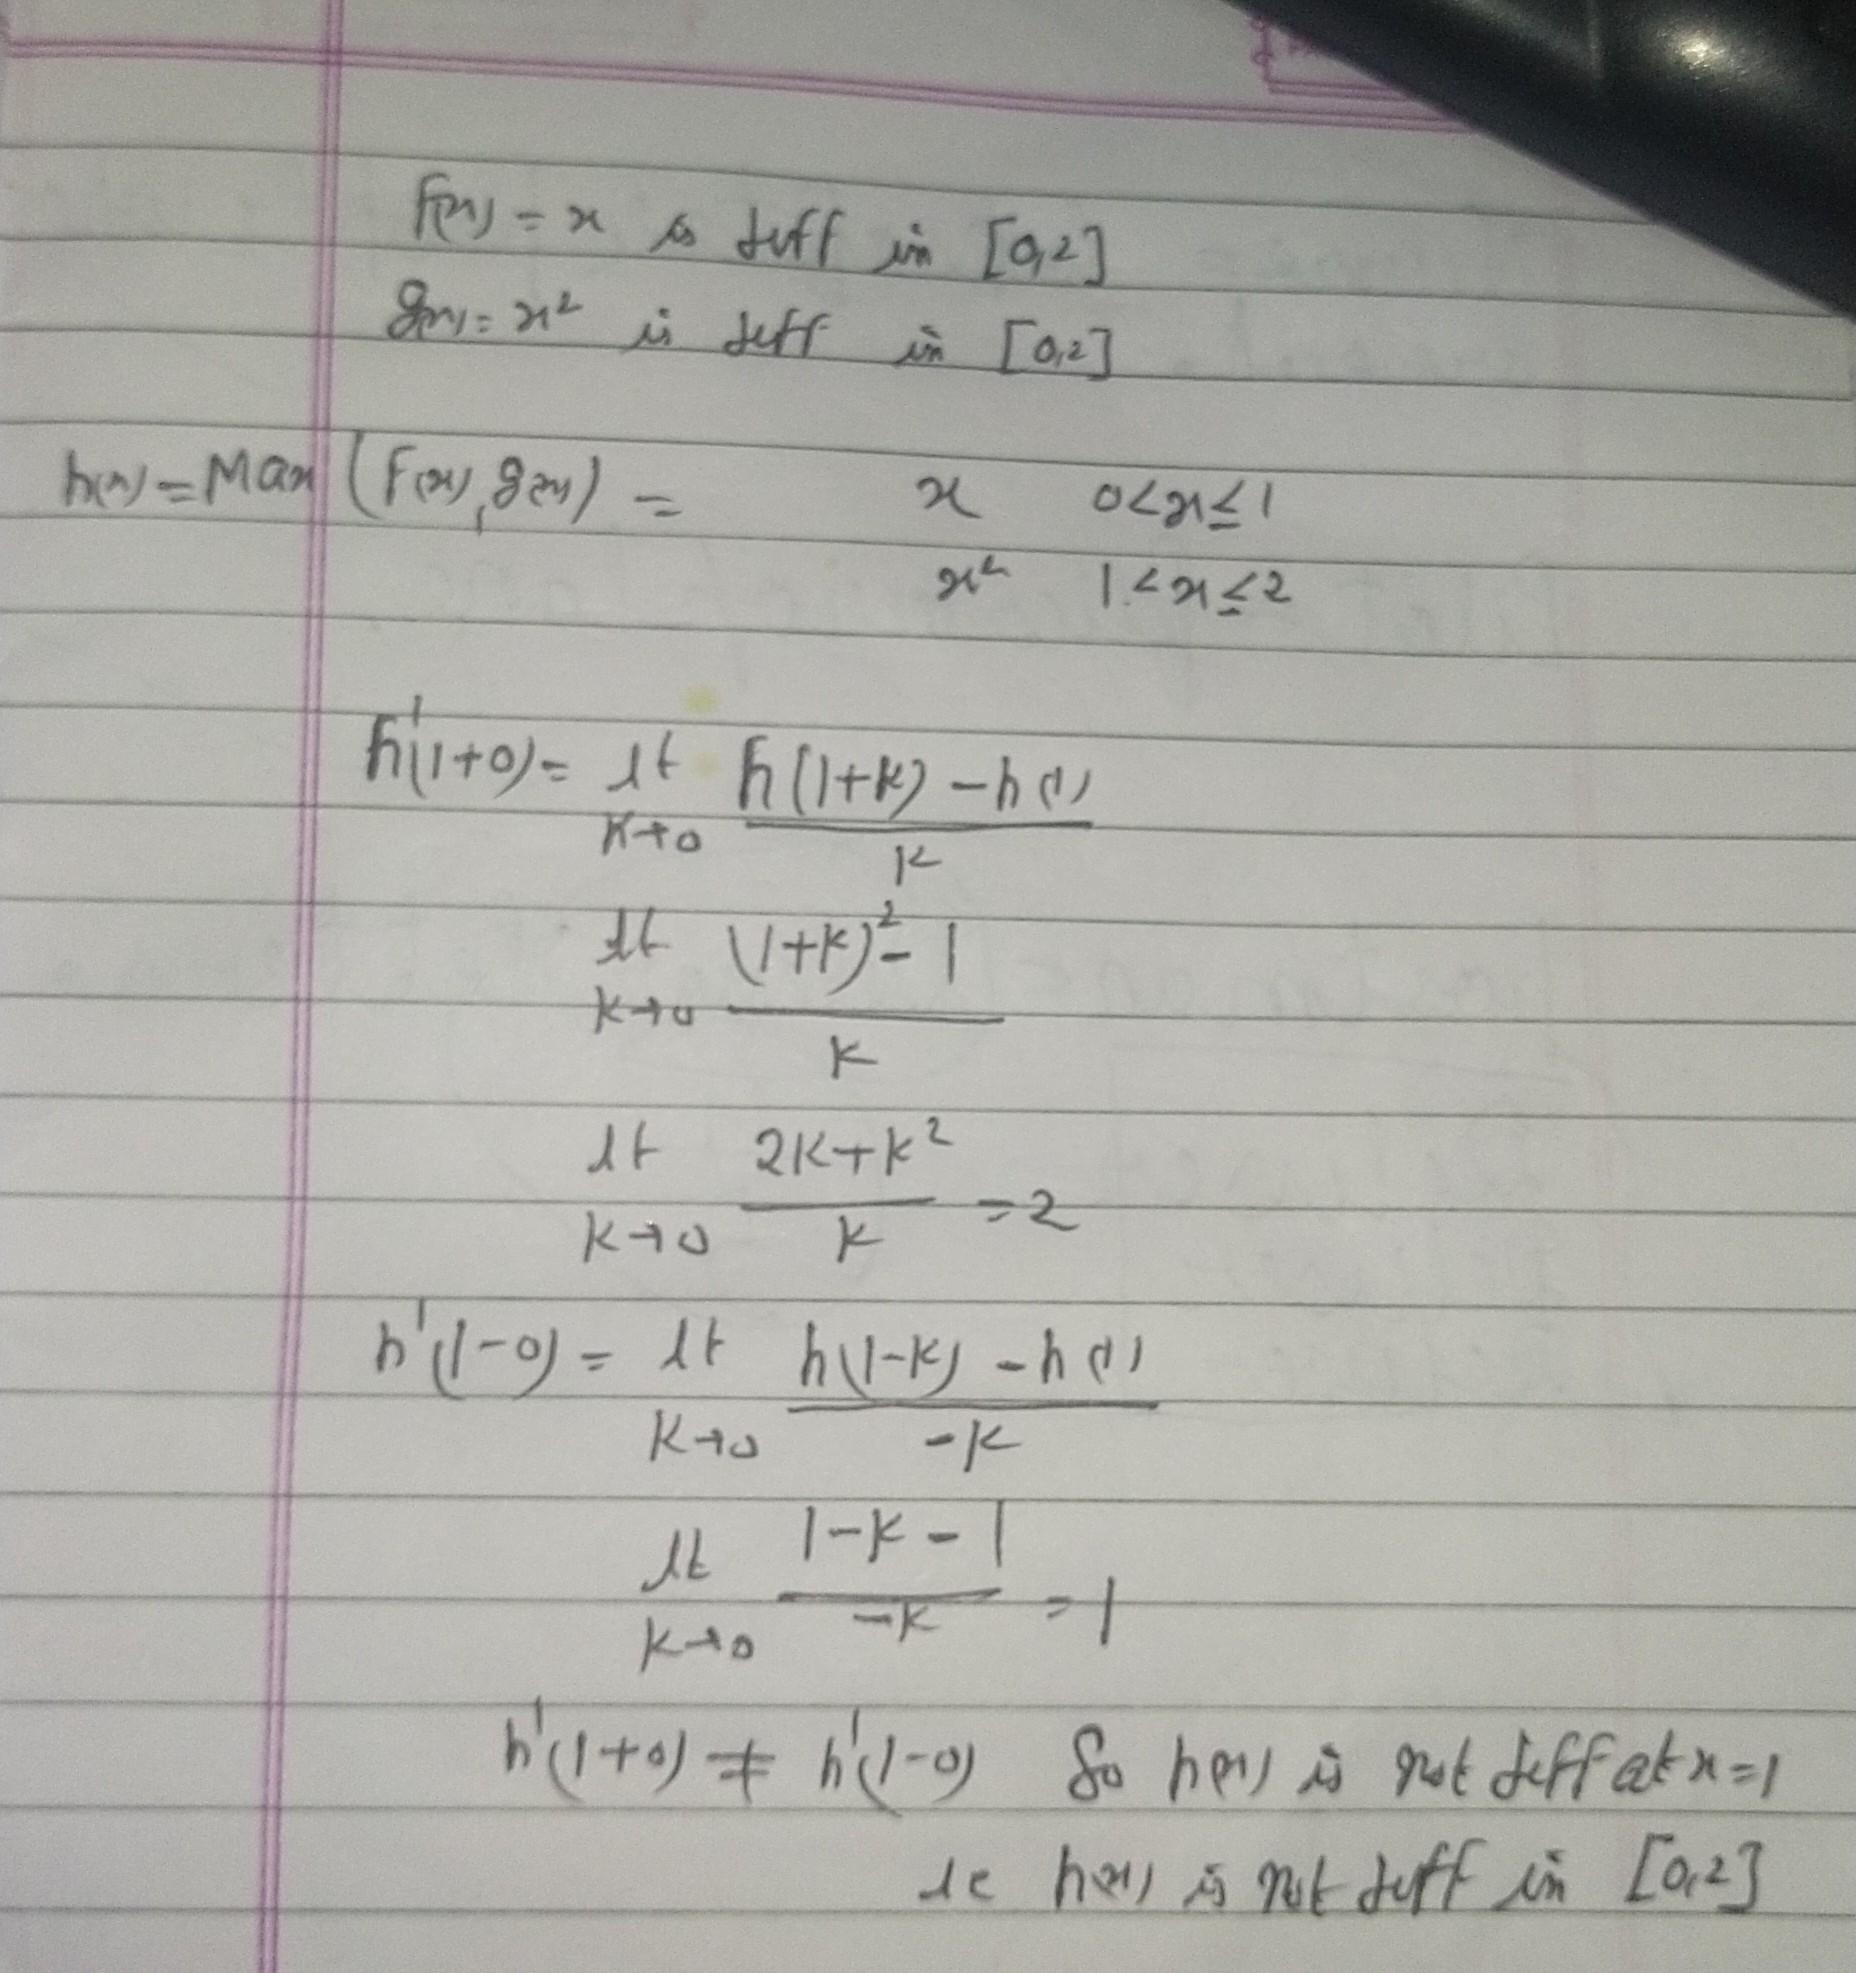 f(x) = x is diff in [0,2]
g(x) = x² is diff in [0,2]
h(x) = Max (f(x), g(x)) = x 0<x≤1
x² 1<x≤2
h'(1+0) = lt h(1+k) - h(1)
k→0 k
lt (1+k)² - 1
k→0 k
lt 2k+k²
k→0 k = 2
h'(1-0) = lt h(1-k) - h(1)
k→0 -k
lt 1-k-1
k→0 -k = 1
h'(1+0) ≠ h'(1-0) So h(x) is not diff at x=1
ie h(x) is not diff in [0,2]